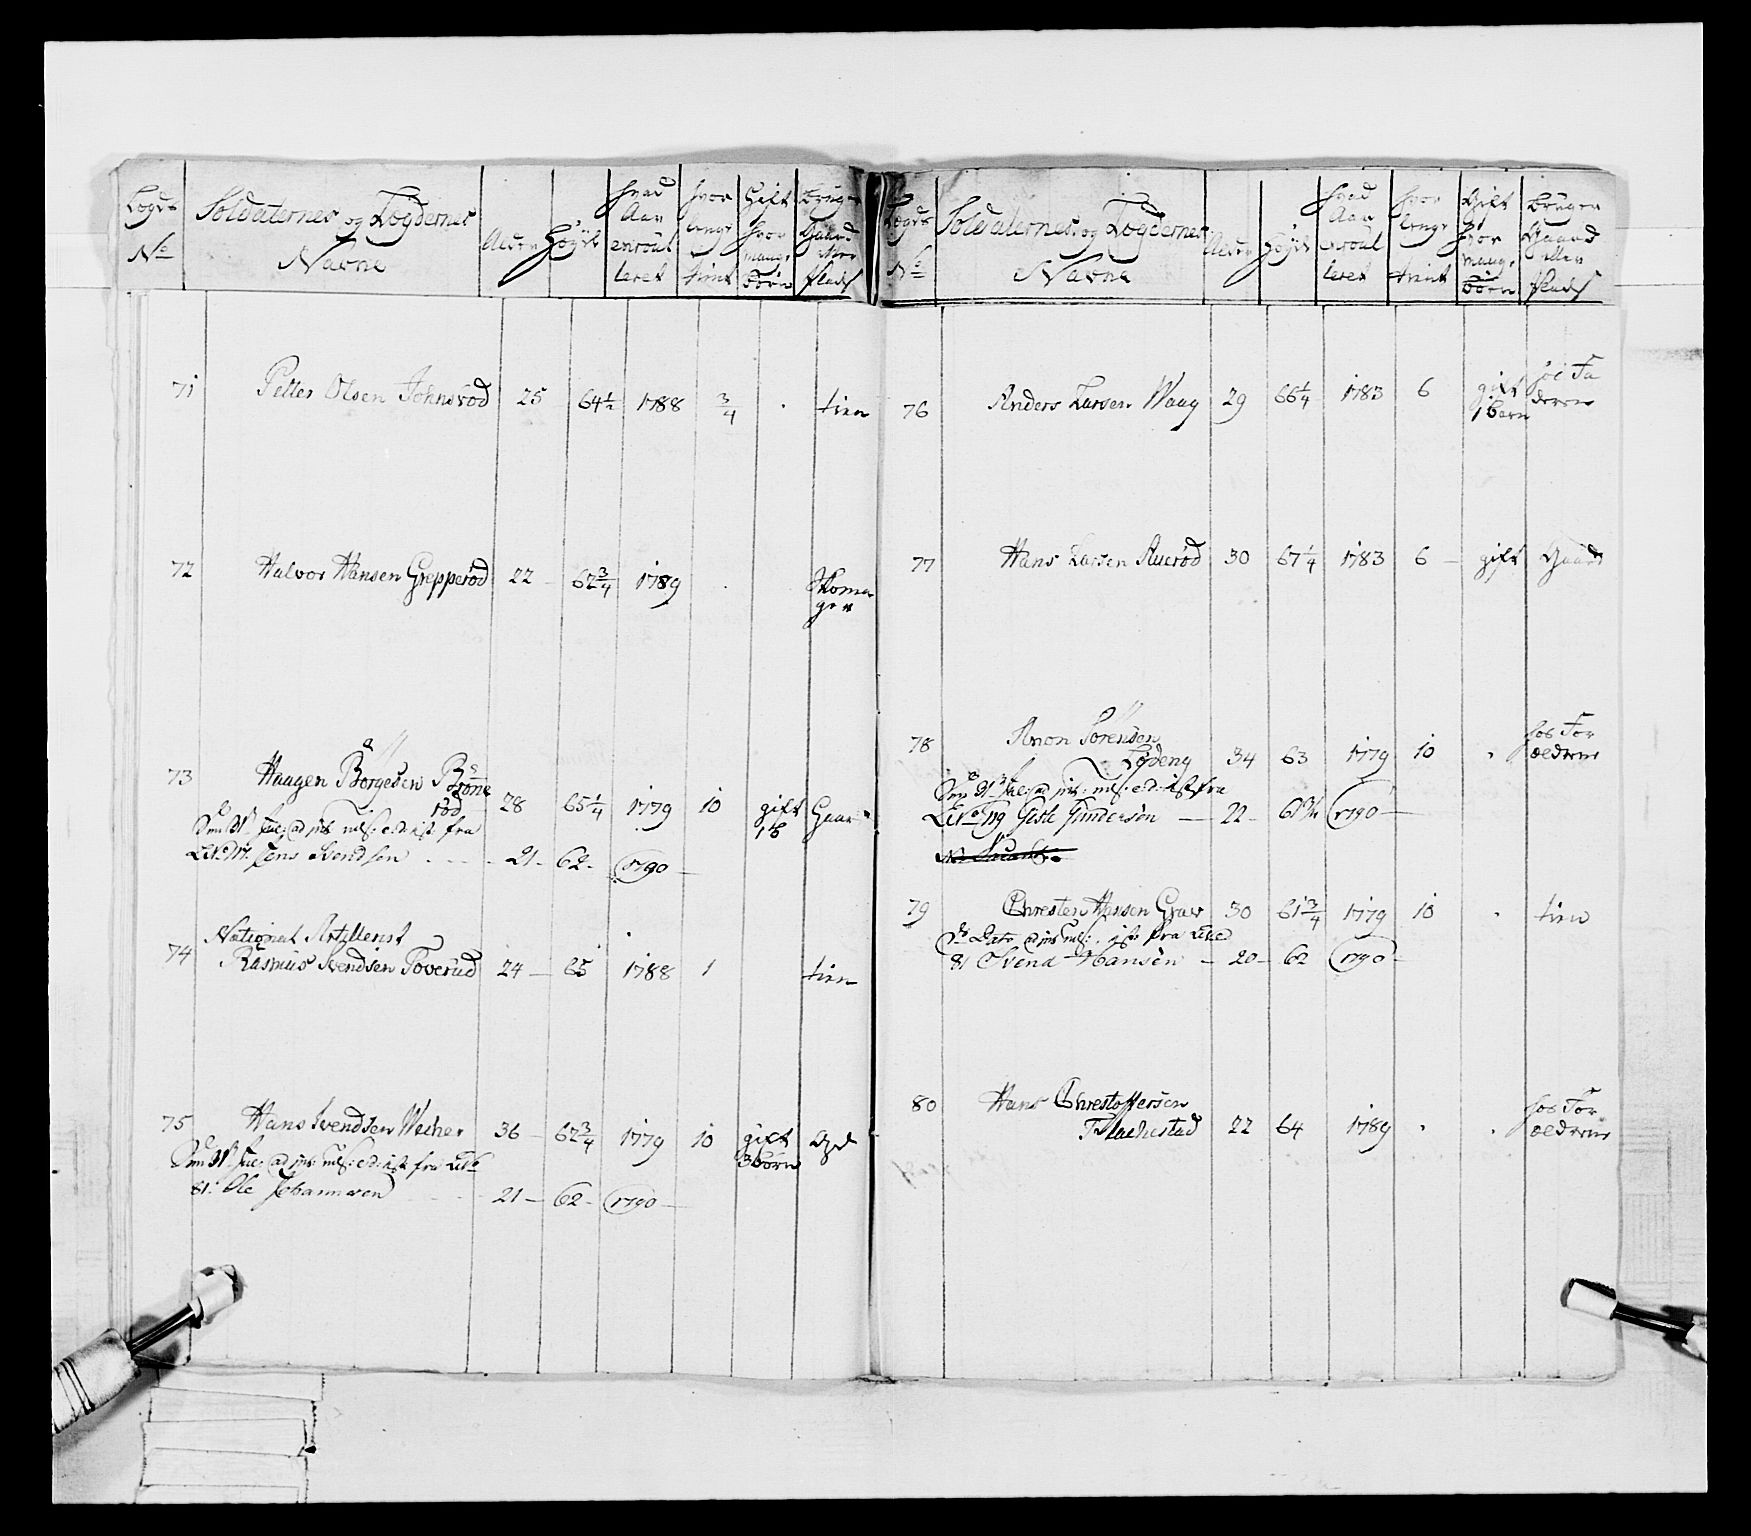 Legds No Soldaternes og Lægdernes Navne Alder Høyde hvad Aar enroulleret hvor lenge tient Gift hvor mange børn bruger Gaard eller Plads
71 Petter Olsen Johnsrød 25 64½ 1788 ¾ . tien
72 Halvor Hansen Grepperød 22 – 62¾ 1789 . Skomager
73 Haagen Børgesen Brønnerød 28 65¼ 1779 10 gift 1 b Gaard
Den 31te fra
Jens Svendsen – 21 – 62 – 1790 –
National Artillerist
74 Rasmus Svendsen Toverud 24 – 65 1788 1 tien
75 Hans Svendsen Weeher 36 – 62¾ 1779 10 gift 3 børn
Den 31te fra
81 Ole Johannesen – 21 – 62 – 1790 –
Legds No Soldaternes og Lægdernes Navne Alder Høyde hvad Aar enroulleret hvor lenge tient Gift hvor mange børn bruger Gaard eller Plads
76 Anders Larsen Waag 29 66¼ 1783 6 gift 1 barn hos Faderen
77 Hans Larsen Auerød 30 67¼ 1783 6 – gift Gaard
78 Anon Sørensen
Lødeng 34 63 1779 10 . hos Forældrene
Den 31te fra
119 Giste Gundersen – 22 – 61¾ 1790 –
79 Chresten Hansen Graver 30 61¾ 1779 10 . tien
Dato fra
81 Svend Hansen – 20 – 62 1790 –
80 Hans Chrestoffersen
Flachestad 22 64 1789 . . hos Forældrene